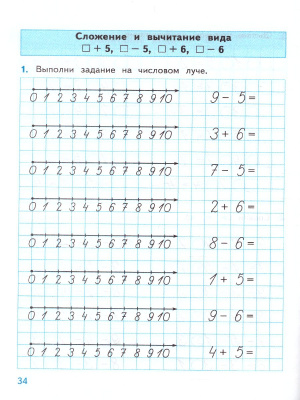 Сложение и вычитание вида
□ + 5, □ − 5, □ + 6, □ − 6
1. Выполни задание на числовом луче.
0 1 2 3 4 5 6 7 8 9 10 9 − 5 =
0 1 2 3 4 5 6 7 8 9 10 3 + 6 =
0 1 2 3 4 5 6 7 8 9 10 7 − 5 =
0 1 2 3 4 5 6 7 8 9 10 2 + 6 =
0 1 2 3 4 5 6 7 8 9 10 8 − 6 =
0 1 2 3 4 5 6 7 8 9 10 1 + 5 =
0 1 2 3 4 5 6 7 8 9 10 9 − 6 =
0 1 2 3 4 5 6 7 8 9 10 4 + 5 =
34